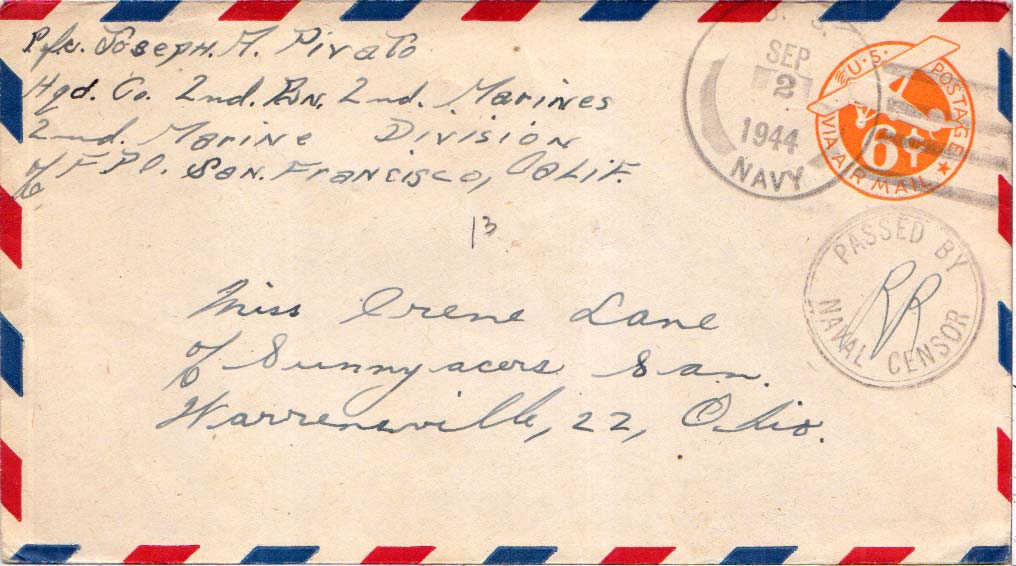 Pfc. Joseph. M. Pivato
Hqd. Co. 2nd. Bn. 2nd. Marines
2nd. Marine Division
℅ F.P.O. San. Francisco, Calif.
U. S.
SEP
2
1944
NAVY
U.S. POSTAGE
6¢
VIA AIR MAIL
13
PASSED BY
RR
NAVAL CENSOR
Miss Irene Lane
℅ Sunnyacers San.
Warrensville, 22, Ohio.